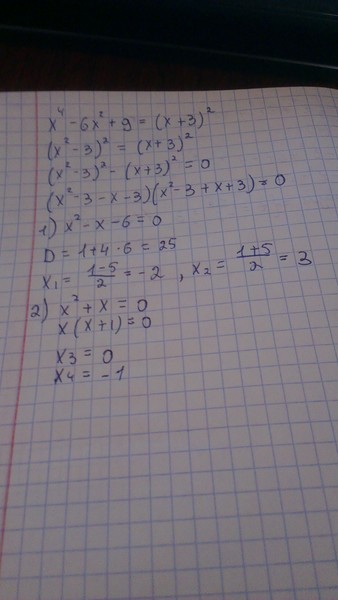 x⁴ - 6x² + 9 = (x + 3)²
(x² - 3)² = (x + 3)²
(x² - 3)² - (x + 3)² = 0
(x² - 3 - x - 3)(x² - 3 + x + 3) = 0
1) x² - x - 6 = 0
D = 1 + 4 · 6 = 25
x₁ = (1-5)/2 = -2 , x₂ = (1+5)/2 = 3
2) x² + x = 0
x(x + 1) = 0
x₃ = 0
x₄ = -1